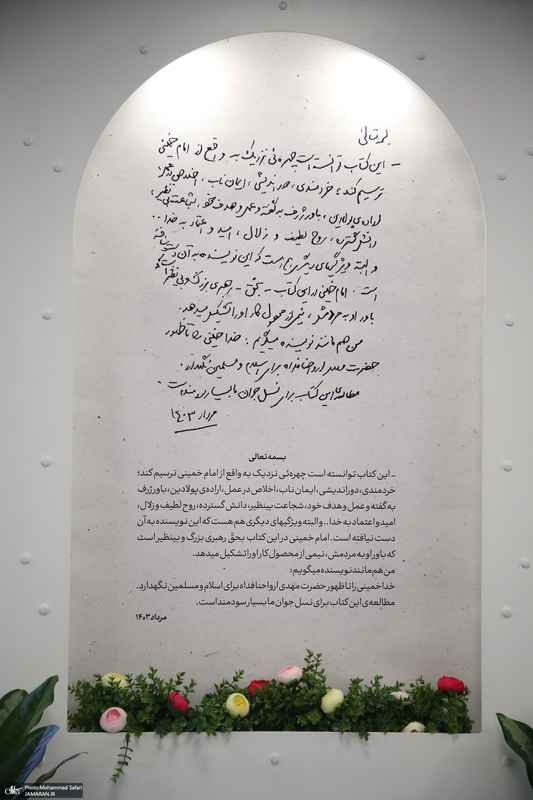 بسمه‌تعالی
- این کتاب توانسته است چهره‌ئی نزدیک به واقع از امام خمینی
ترسیم کند؛ خردمندی، دوراندیشی، ایمان ناب، اخلاص در عمل،
اراده‌ی پولادین، باور ژرف به گفته و عمل و هدف خود، شجاعت بی‌نظیر،
دانش گسترده، روح لطیف و زلال، امید و اعتماد به خدا ..
و البته ویژگیهای دیگری هم هست که این نویسنده به آن دست نیافته
است. امام خمینی در این کتاب - بحق - رهبری بزرگ و بی‌نظیر است که
باور او به مردمش، نیمی از محصول کار او را تشکیل میدهد.
من هم مانند نویسنده میگویم: خدا خمینی را تا ظهور
حضرت مهدی ارواحنا فداه برای اسلام و مسلمین نگهدارد.
مطالعه‌ی این کتاب برای نسل جوان ما بسیار سودمند است.
مرداد ۱۴۰۳
بسمه تعالی
- این کتاب توانسته است چهره‌ئی نزدیک به واقع از امام خمینی ترسیم کند؛
خردمندی، دوراندیشی، ایمان ناب، اخلاص در عمل، اراده‌ی پولادین، باور ژرف
به گفته و عمل و هدف خود، شجاعت بینظیر، دانش گسترده، روح لطیف و زلال،
امید و اعتماد به خدا.. و البته ویژگیهای دیگری هم هست که این نویسنده به آن
دست نیافته است. امام خمینی در این کتاب بحق رهبری بزرگ و بینظیر است
که باور او به مردمش، نیمی از محصول کار او را تشکیل میدهد.
من هم مانند نویسنده میگویم:
خدا خمینی را تا ظهور حضرت مهدی ارواحنا فداه برای اسلام و مسلمین نگهدارد.
مطالعه‌ی این کتاب برای نسل جوان ما بسیار سودمند است.
مرداد ۱۴۰۳
Photo:Mohammad Safari
JAMARAN.IR